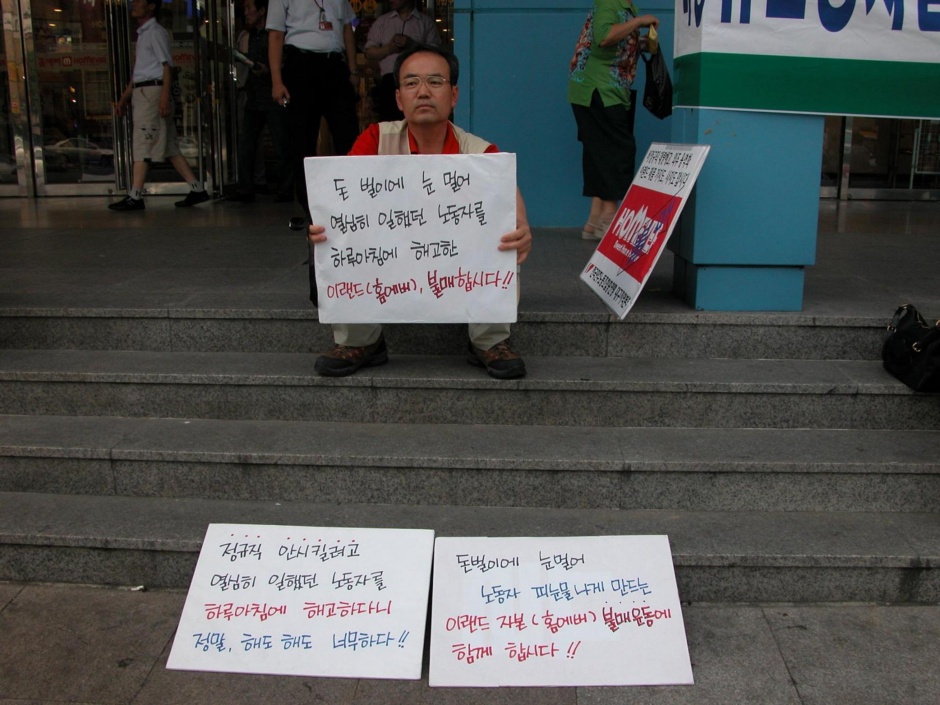 돈 벌이에 눈 멀어
열심히 일했던 노동자를
하루아침에 해고한
이랜드(홈에버), 불매합시다!!
정규직 안시킬려고
열심히 일했던 노동자를
하루아침에 해고하다니
정말, 해도 해도 너무하다!!
돈벌이에 눈멀어
노동자 피눈물나게 만드는
이랜드 자본(홈에버) 불매운동에
함께 합시다!!